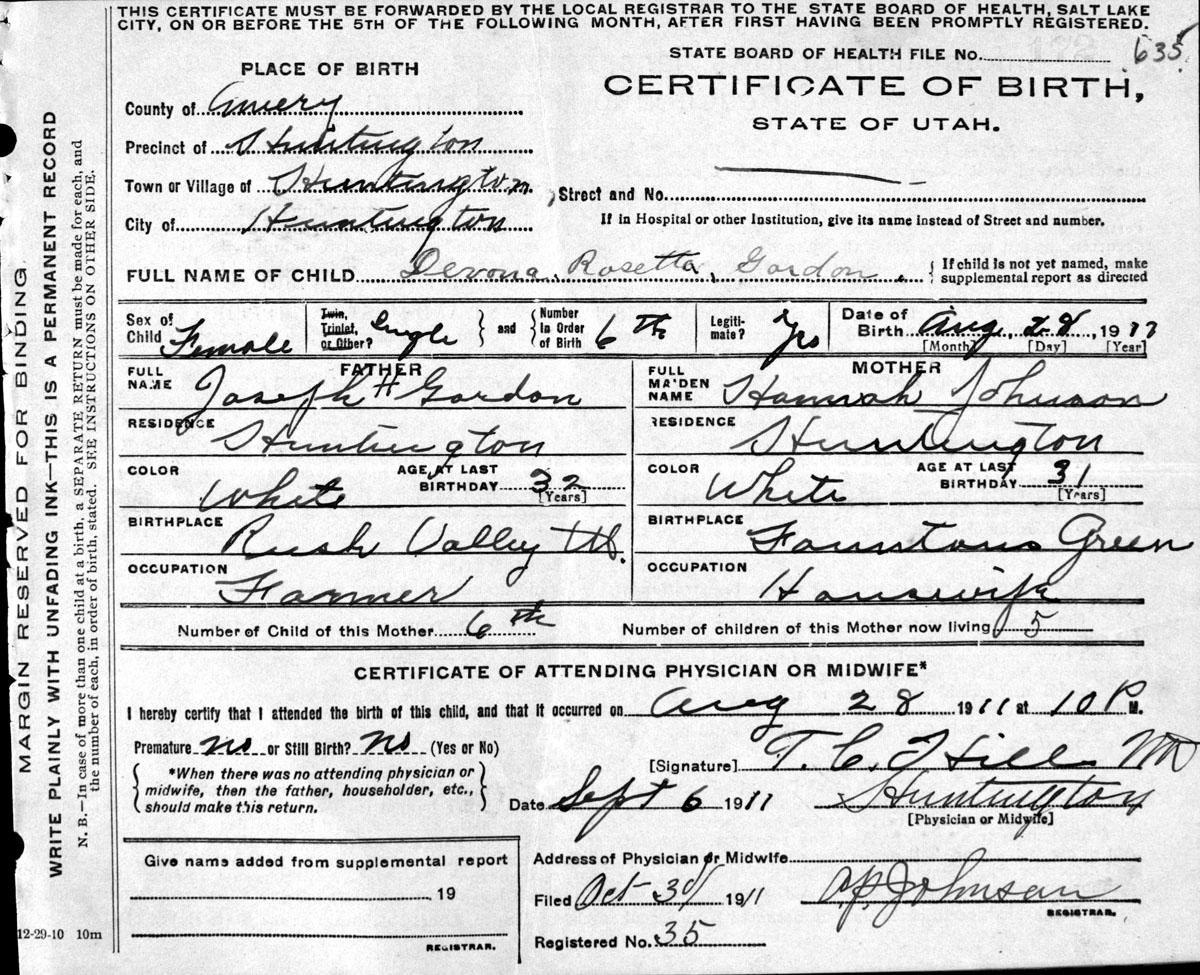 THIS CERTIFICATE MUST BE FORWARDED BY THE LOCAL REGISTRAR TO THE STATE BOARD OF HEALTH, SALT LAKE
CITY, ON OR BEFORE THE 5TH OF THE FOLLOWING MONTH, AFTER FIRST HAVING BEEN PROMPTLY REGISTERED.
MARGIN RESERVED FOR BINDING
WRITE PLAINLY WITH UNFADING INK—THIS IS A PERMANENT RECORD
N. B.—In case of more than one child at a birth, a SEPARATE RETURN must be made for each, and
the number of each, in order of birth, stated. SEE INSTRUCTIONS ON OTHER SIDE.
STATE BOARD OF HEALTH FILE No. 635
PLACE OF BIRTH
CERTIFICATE OF BIRTH,
STATE OF UTAH.
County of Emery
Precinct of Huntington
Town or Village of Huntington
Street and No.
City of Huntington
If in Hospital or other Institution, give its name instead of Street and number.
FULL NAME OF CHILD Devona Rosetta Gordon
If child is not yet named, make
supplemental report as directed
Sex of Child Female
Twin, Triplet, or Other? Single
and
Number In Order of Birth 6th
Legiti-mate? Yes
Date of Birth Aug 28 1911
[Month] [Day] [Year]
FATHER
FULL NAME Joseph H Gordon
RESIDENCE Huntington
COLOR White
AGE AT LAST BIRTHDAY 32 [Years]
BIRTHPLACE Rush Valley Ut.
OCCUPATION Farmer
MOTHER
FULL MAIDEN NAME Hannah Johnson
RESIDENCE Huntington
COLOR White
AGE AT LAST BIRTHDAY 31 [Years]
BIRTHPLACE Fountans Green
OCCUPATION Housewife
Number of Child of this Mother 6th
Number of children of this Mother now living 5
CERTIFICATE OF ATTENDING PHYSICIAN OR MIDWIFE*
I hereby certify that I attended the birth of this child, and that it occurred on Aug 28 1911 at 10 P M.
Premature no or Still Birth? no (Yes or No)
[Signature] T. C. Hill MD
*When there was no attending physician or
midwife, then the father, householder, etc.,
should make this return.
Date Sept 6 1911
Huntington
[Physician or Midwife]
Give name added from supplemental report
19
REGISTRAR.
Address of Physician or Midwife
Filed Oct 3d 1911
O.P. Johnson
REGISTRAR.
Registered No. 35
12-29-10 10m